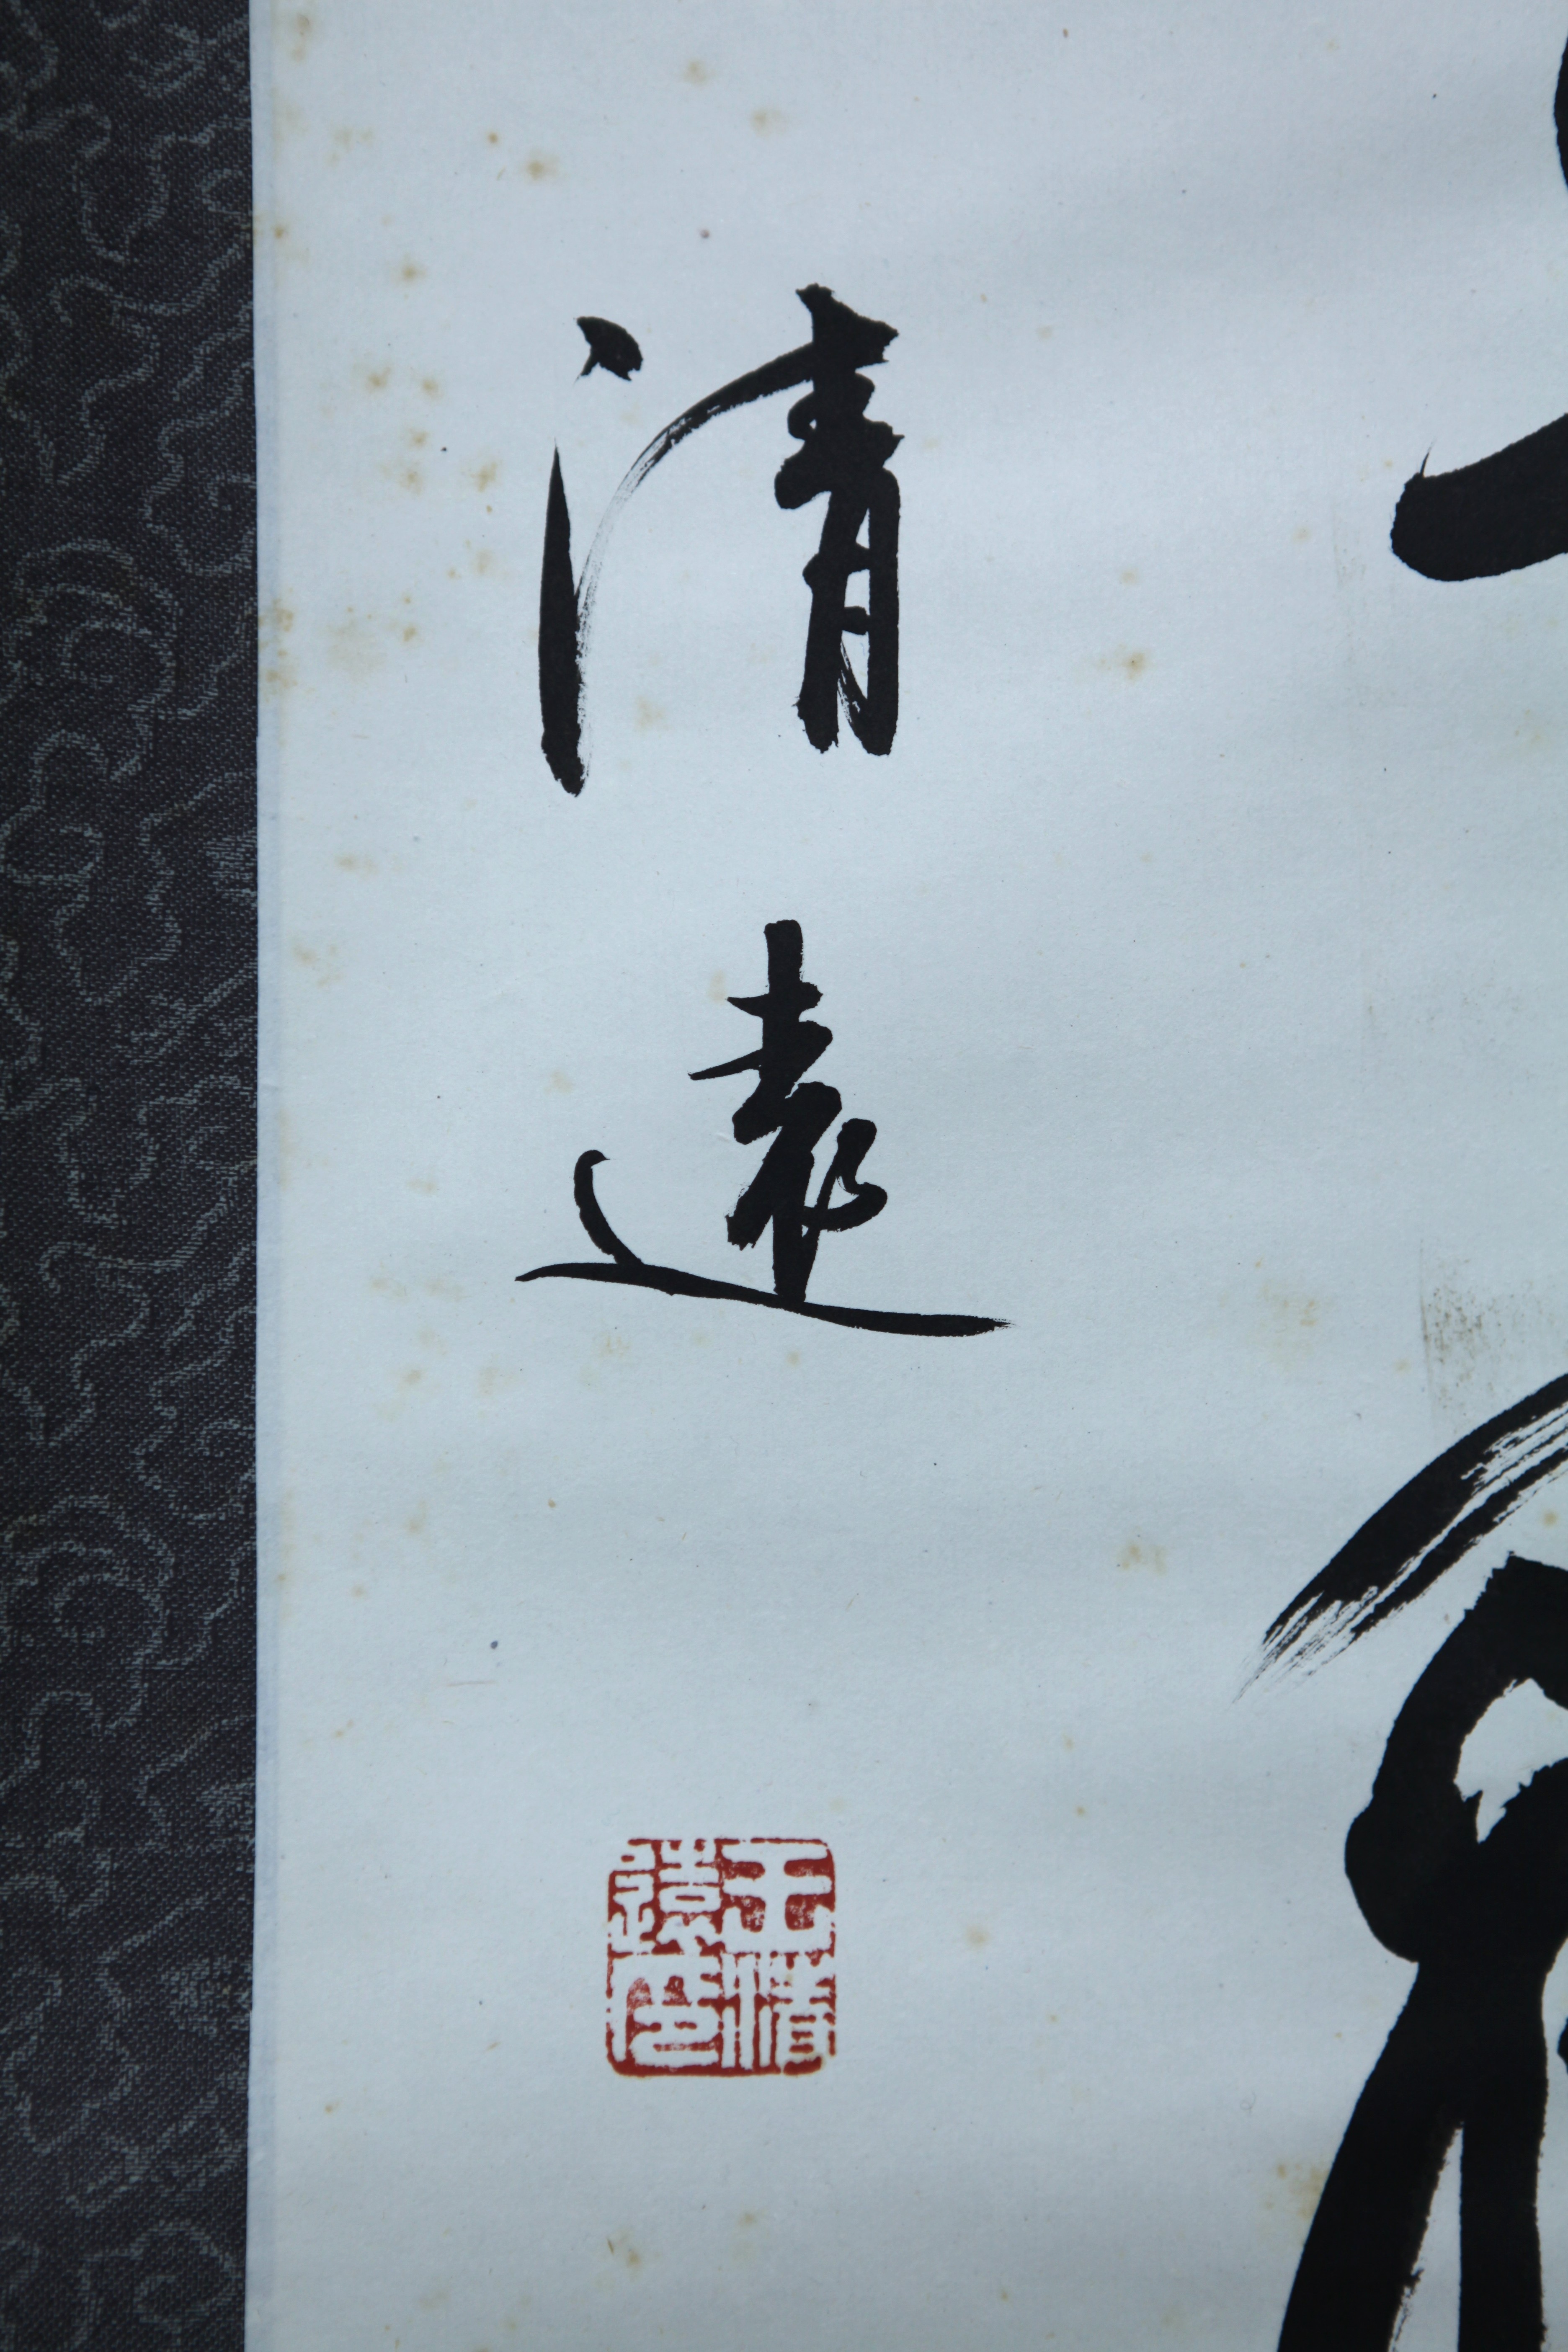 清遠
王清
遠印